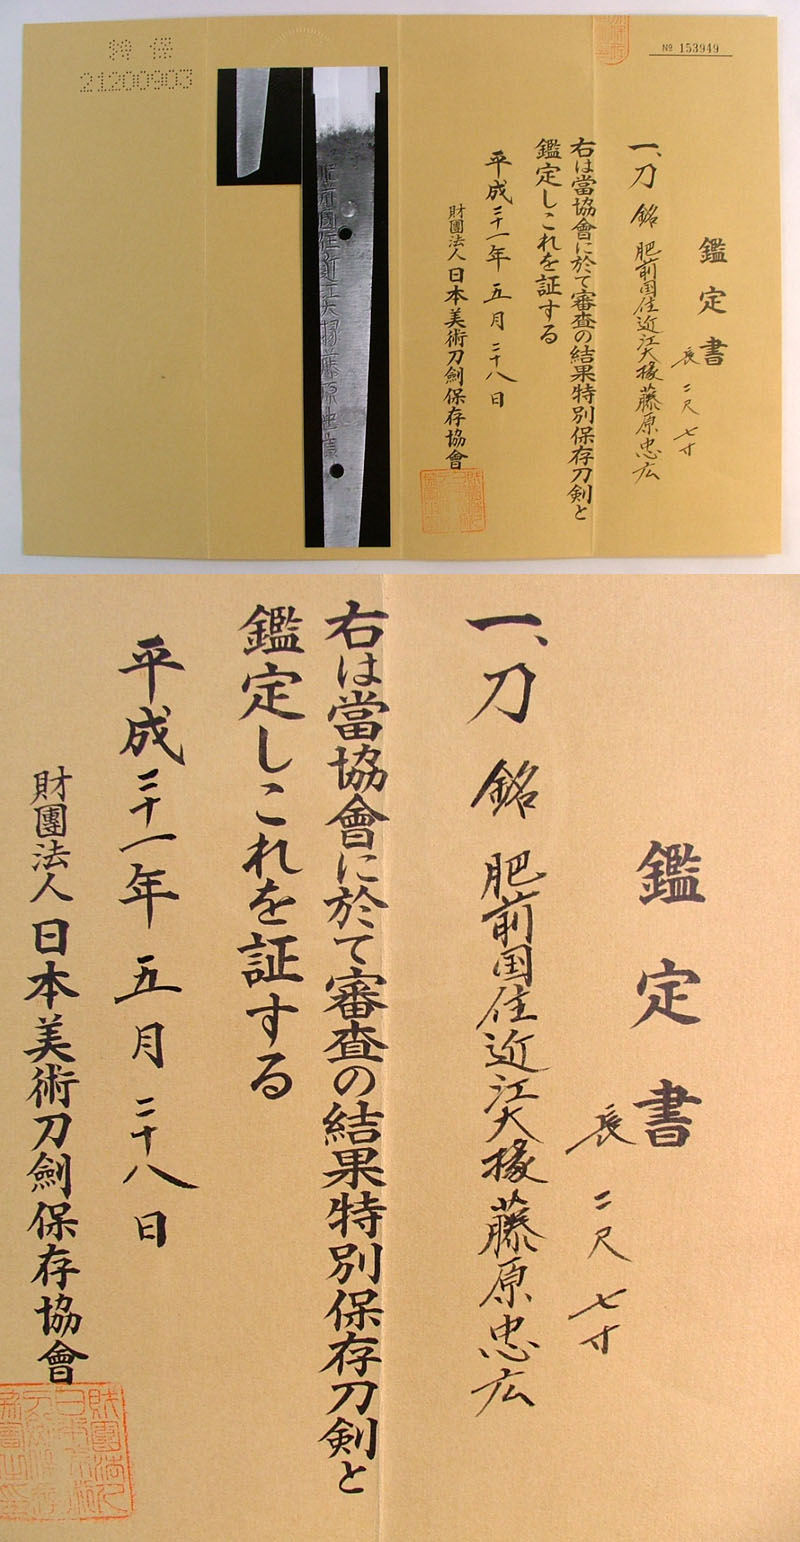 № 153949
鑑定書
長 二尺 七寸
一、刀 銘 肥前国住近江大掾藤原忠広
右は當協會に於て審査の結果特別保存刀剣と
鑑定しこれを証する
平成二十一年 五月 二十八日
財團法人 日本美術刀劍保存協會
肥前國住近江大掾藤原忠廣
特 保
21200903
鑑定書
長 二尺 七寸
一、刀 銘 肥前国住近江大掾藤原忠広
右は當協會に於て審査の結果特別保存刀剣と
鑑定しこれを証する
平成二十一年 五月 二十八日
財團法人 日本美術刀劍保存協會